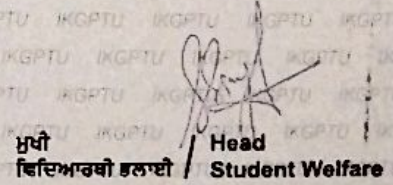 IKGPTU IKGPTU IKGPTU IKGPTU IKGPTU
ਮੁਖੀ / Head
ਵਿਦਿਆਰਥੀ ਭਲਾਈ / Student Welfare